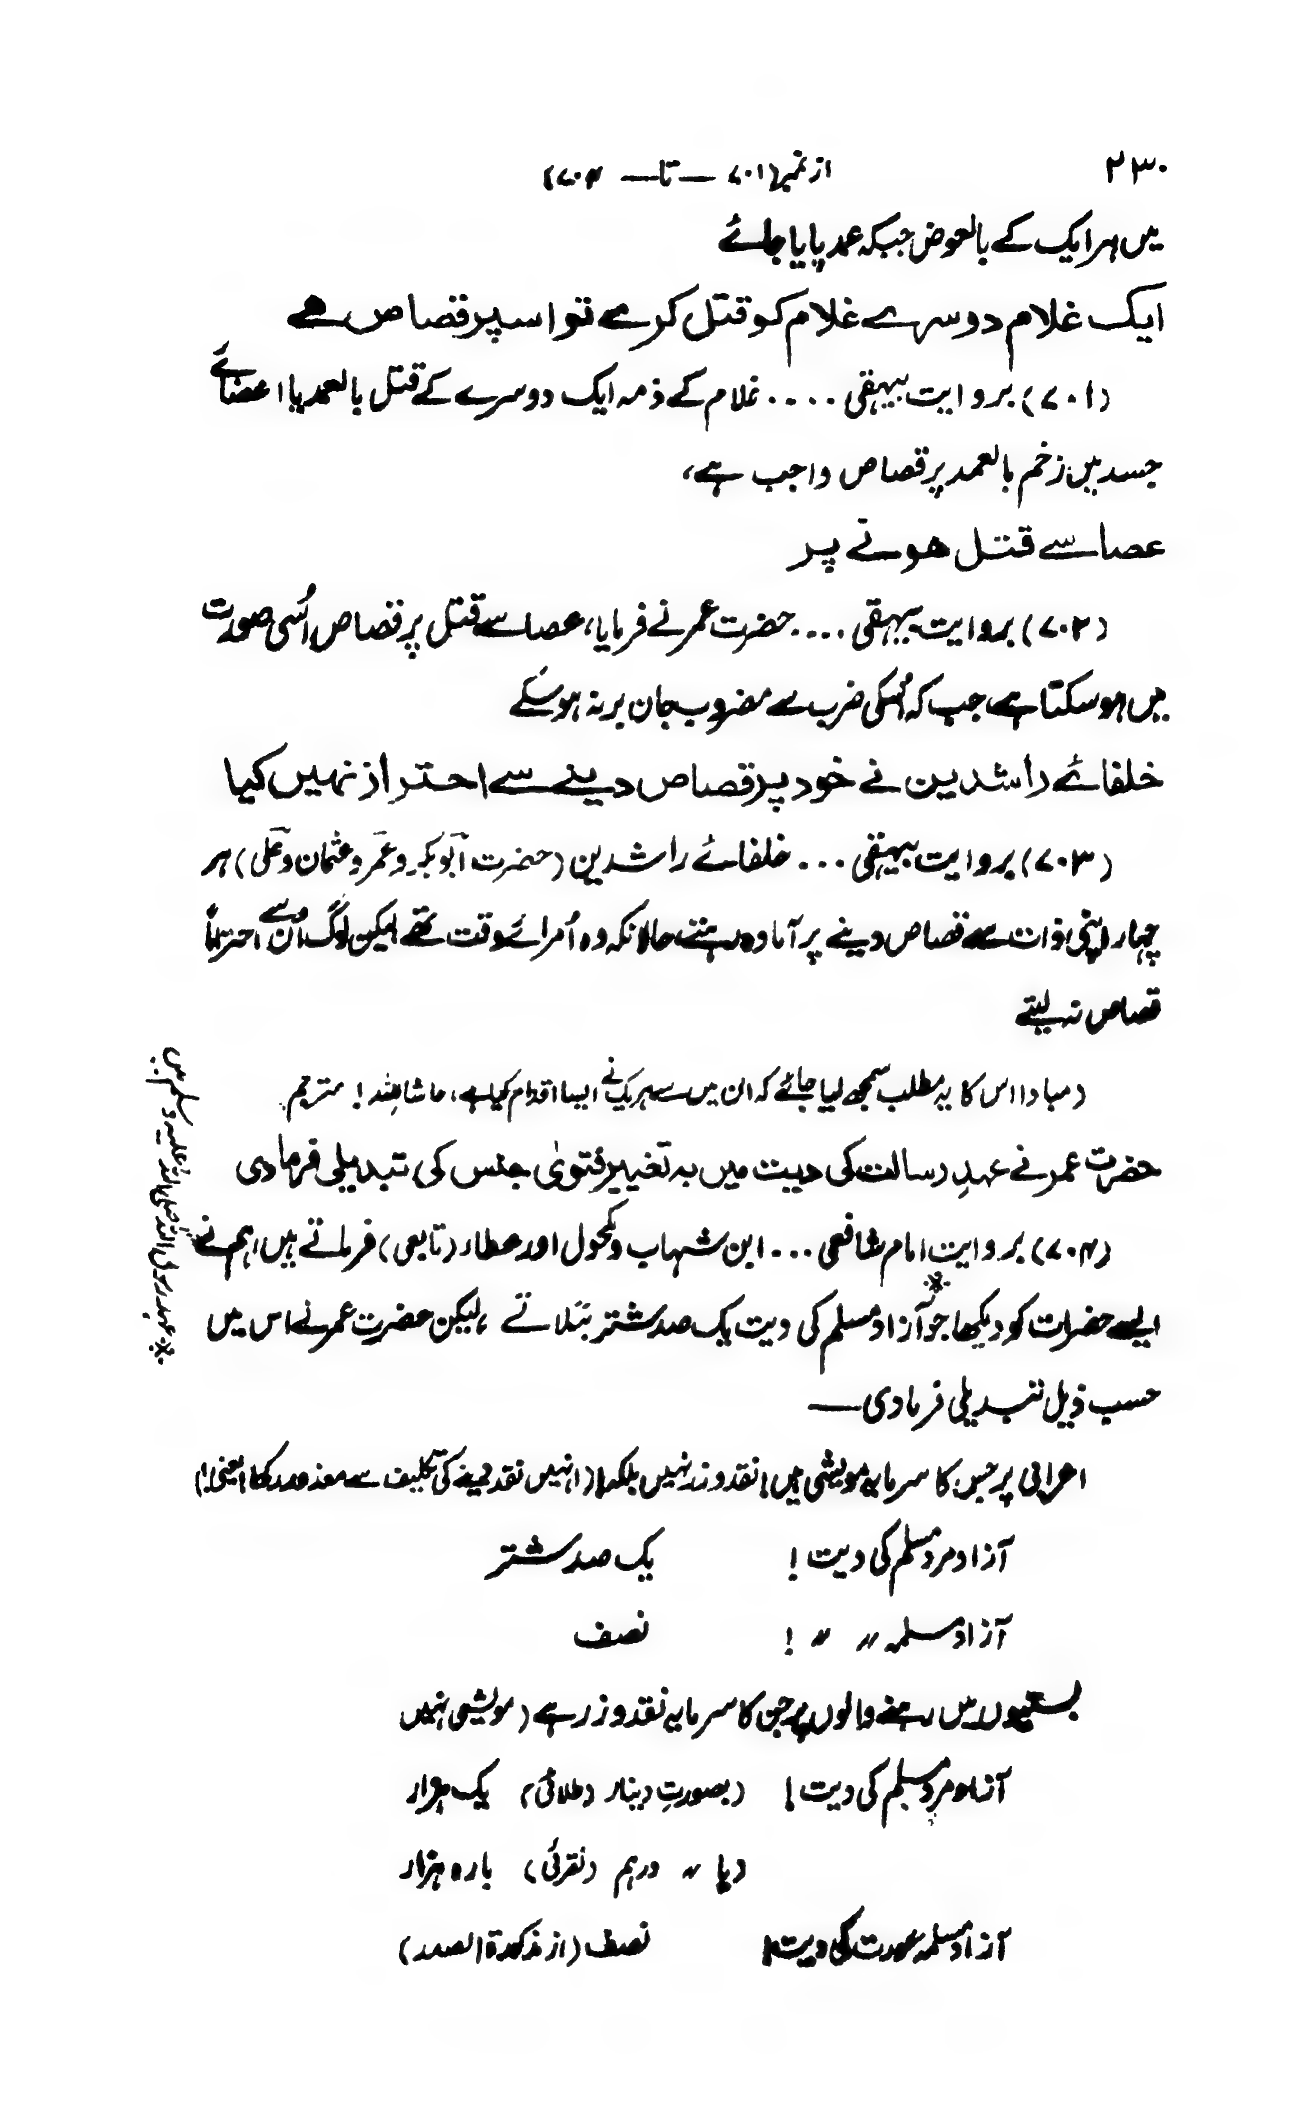 ۲۳۰
از نمبر (۷۰۱ — تا — ۷۰۴)
میں ہر ایک کے بالعوض جبکہ عمد پایا جائے
ایک غلام دوسرے غلام کو قتل کرے تو اسپر قصاص ہے
(۷۰۱) بروایت بیہقی .... غلام کے ذمہ ایک دوسرے کے قتل بالعمد یا اعضائے
جسد میں زخم بالعمد پر قصاص واجب ہے،
عصا سے قتل ہونے پر
(۷۰۲) بروایت بیہقی .... حضرت عمر نے فرمایا، عصا سے قتل پر قصاص اُسی صورت
میں ہو سکتا ہے، جب کہ اُسکی ضرب سے مضروب جان بر نہ ہو سکے
خلفائے راشدین نے خود پر قصاص دینے سے احتراز نہیں کیا
(۷۰۳) بروایت بیہقی ... خلفائے راشدین (حضرت ابوبکر و عمر و عثمان و علی) ہر
چہار اپنی ذات سے قصاص دینے پر آمادہ رہتے حالانکہ وہ اُمرائے وقت تھے لیکن لوگ اُن سے احتراماً
قصاص نہ لیتے
(مبادا اس کا یہ مطلب سمجھ لیا جائے کہ ان میں سے ہر یک نے ایسا اقدام کیا ہے، حاشا للہ! مترجم
حضرت عمر نے عہدِ رسالت کی دیت میں بہ تغیر فتویٰ جنس کی تبدیلی فرما دی
(۷۰۴) بروایت امام شافعی ... ابن شہاب و مکحول اور عطار (تابعی) فرماتے ہیں، ہم نے
ایسے حضرات کو دیکھا جو آزاد مسلم کی دیت یک صد شتر بتلاتے ، لیکن حضرت عمر نے اس میں
حسب ذیل تبدیلی فرما دی —
اعرابی پر جس کا سرمایہ مویشی ہیں! نقد و زر نہیں بلکہ! (انہیں نقد دینے کی تکلیف سے معذور رکھا! یعنی!)
آزاد مرد مسلم کی دیت ! یک صد شتر
آزاد مسلمہ 〃 〃 ! نصف
بستیوں میں رہنے والوں پر جن کا سرمایہ نقد و زر ہے (مویشی نہیں
آزاد مرد مسلم کی دیت ! (بصورتِ دینار (طلائی) یک ہزار
(یا 〃 درہم (نقرئی) بارہ ہزار
آزاد مسلمہ عورت کی دیت! نصف (از مذکورۃ الصدر)
※ عہد رسول اللہ صلی اللہ علیہ وسلم میں